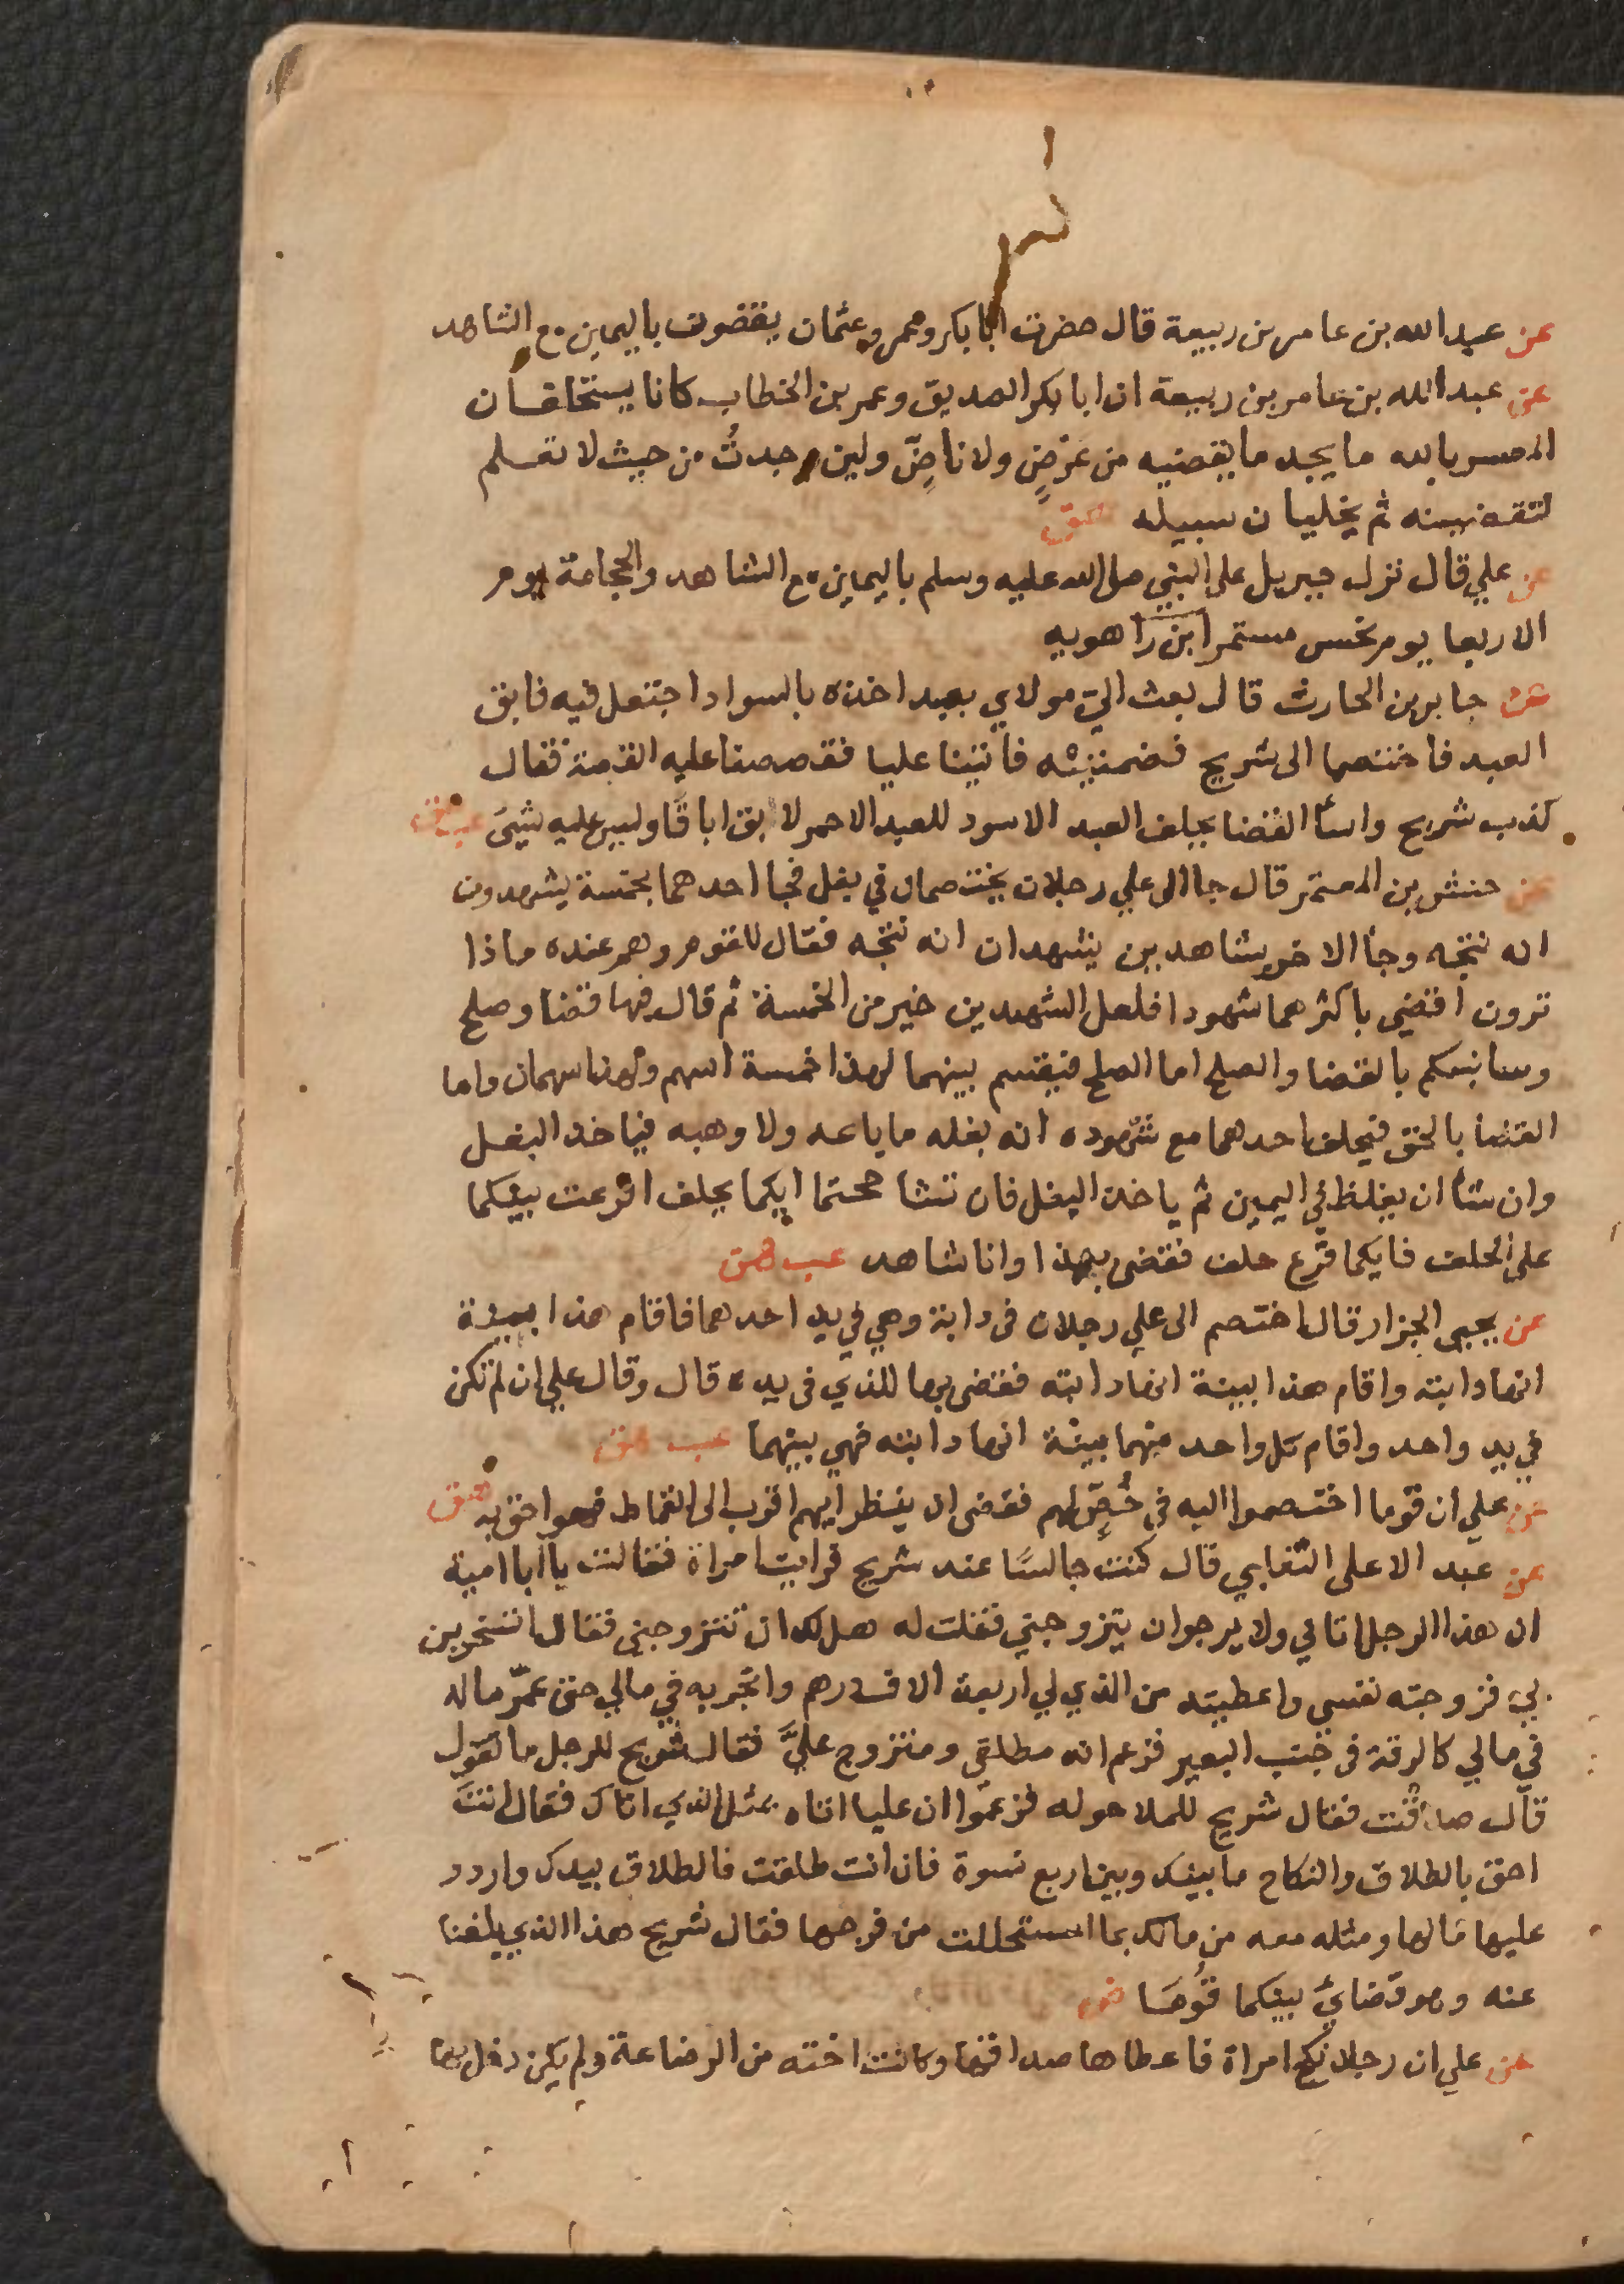 عن عبد الله بن عامر بن ربيعة قال حضرت ابا بكر وعمر وعثمان يقضون باليمين مع الشاهد
عن عبد الله بن عامر بن ربيعة ان ابا بكر الصديق وعمر بن الخطاب كانا يستحلفان
المعسر بالله ما يجد ما يقضيه من عرضٍ ولا ناضٍّ ولين وجدتُ من حيث لا نعلم
لتقضينه ثم يخليان سبيله هق
عن علي قال نزل جبريل على النبي صلى الله عليه وسلم باليمين مع الشاهد والحجامة يوم
الاربعا يوم نحس مستمر ابن راهويه
عن جابر بن الحارث قال بعث الي مولاي بعبد اخذه بالسواد اجتعل فيه فابق
العبد فاختصما الى شريح فضمننيه فاتينا عليا فقصصنا عليه القصة فقال
كذب شريح واسأ القضا يحلف العبد الاسود للعبد الاحمر لابق اباقًا وليس عليه شيئ عب هق
عن حنش بن المعتمر قال جا الى علي رجلان يختصمان في بغل فجا احدهما بخمسة يشهدون
انه نتجه وجا الاخر بشاهدين يشهدان انه نتجه فقال للقوم وهم عنده ماذا
ترون اقضي باكثرهما شهودا فلعل الشهيدين خير من الخمسة ثم قال فيها قضا وصلح
وسانبئكم بالقضا والصلح اما الصلح فيقسم بينهما لهذا خمسة اسهم ولهذا سهمان واما
القضا بالحق فيحلف احدهما مع شهوده انه بغله ما باعه ولا وهبه فياخذ البغل
وان شأ ان يغلظ في اليمين ثم ياخذ البغل فان تشاححتما ايكما يحلف اقرعت بينكما
على الحلف فايكما قرع حلف فقضى بهذا وانا شاهد عب هق
عن يحيى الجزار قال اختصم الى علي رجلان في دابة وهي في يد احدهما فاقام هذا بينة
انها دابته واقام هذا بينة انها دابته فقضى بها للذي في يده قال وقال علي ان لم تكن
في يد واحد واقام كل واحد منهما بينة انها دابته فهي بينهما عب هق
عن علي ان قوما اختصموا اليه في خُصٍّ لهم فقضى ان ينظر ايهم اقرب الى القماط فهو احق به هق
عن عبد الاعلى الثعلبي قال كنت جالسًا عند شريح فرايت امراة فقالت يا ابا امية
ان هذا الرجل اتاني ولا يرجو ان يتزوجني فقلت له هل لك ان تتزوجني فقال اتسخرين
بي فزوجته نفسي واعطيته من الذي لي اربعة الاف درهم واتجر به في مالي حتى عمّر ماله
في مالي كالرقة في جنب البعير فزعم انه مطلقي ومتزوج عليَّ فقال شريح للرجل ما تقول
قال صدقت فقال شريح للملا حوله فزعموا ان عليا اتاه مثل الذي اتاك فقال انتَ
احق بالطلاق والنكاح ما بينك وبين اربع نسوة فان انت طلقت فالطلاق بيدك واردد
عليها مالها ومثله معه من مالك بما استحللت من فرجها فقال شريح هذا الذي يلغنا
عنه وهو قضايَ بينكما قُومَا
عن علي ان رجلا نكح امراة فاعطاها صداقها وكانت اخته من الرضاعة ولم يكن دخل بها